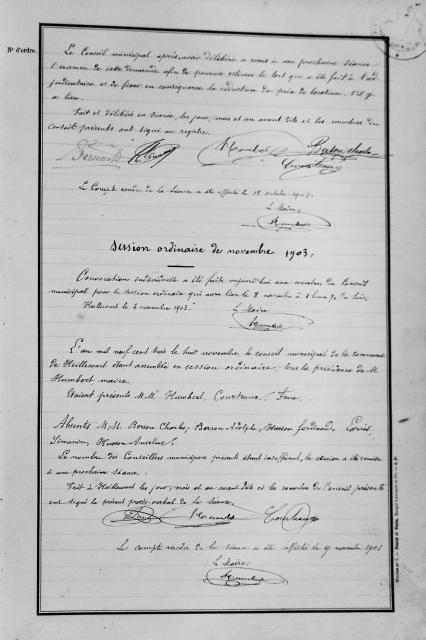 N° d'ordre.
Le Conseil municipal après avoir délibéré a remis à une prochaine séance
l'examen de cette demande afin de pouvoir estimer le tort qui a été fait à l'ad-
judicataire et de fixer en conséquence la réduction du prix de location, s'il y
a lieu.
Fait et délibéré en séance, les jour, mois et an avant dits et les membres du
Conseil présents ont signé au registre.
Courteaux
Le Compte rendu de la séance a été affiché le 12 octobre 1903.
Le Maire,
Session ordinaire de novembre 1903.
Convocation individuelle a été faite aujourd'hui aux membres du Conseil
municipal pour la session ordinaire qui aura lieu le 8 novembre à 1 heure du soir.
Heillecourt le 4 novembre 1903.
Le Maire
L'an mil neuf cent trois le huit novembre, le conseil municipal de la commune
de Heillecourt étant assemblé en session ordinaire, sous la présidence de M
Humbert, maire.
Etaient présents M.M. Humbert, Courteaux,
Absents M.M. Charles, Adolphe, Ferdinand, Louis,
Husson Anselme.
Le nombre des Conseillers municipaux présents étant insuffisant, la session a été remise
à une prochaine séance.
Fait à Heillecourt les jour, mois et an avant dits et les membres du Conseil présents
ont signé le présent procès-verbal de la séance.
Courteaux
Le compte rendu de la séance a été affiché le 9 novembre 1903
Le Maire,